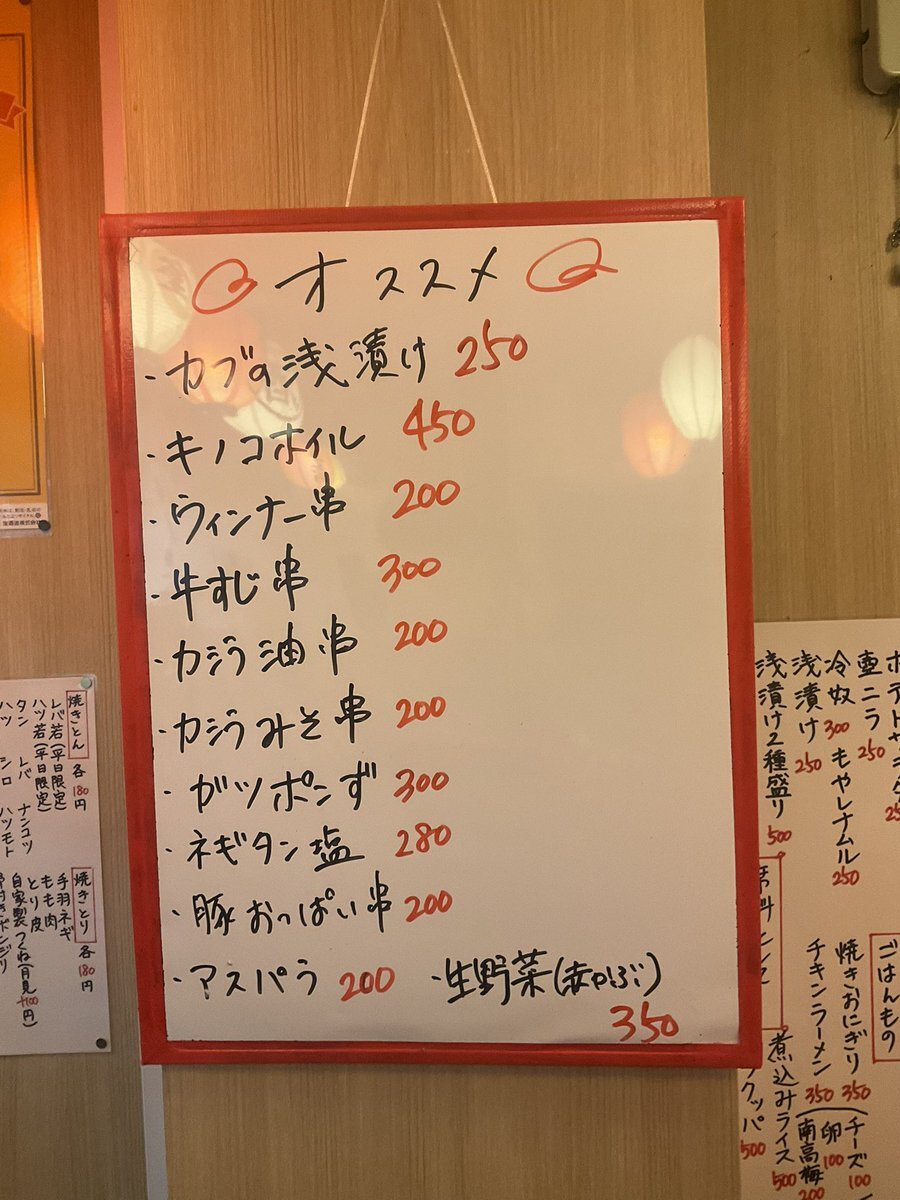 オススメ
・カブの浅漬け 250
・キノコホイル 450
・ウィンナー串 200
・牛すじ串 300
・カシラ油串 200
・カシラみそ串 200
・ガツポンず 300
・ネギタン塩 280
・豚おっぱい串 200
・アスパラ 200
・生野菜(赤かぶ) 350
焼きとん 各180円
レバ若(平日限定)
ハツ若(平日限定)
タン レバ ナンコツ
ハツ シロ ハツモト
焼きとり 各180円
手羽ネギ
もも肉
とり皮
自家製つくね(月見+100円)
壺ニラ 250
冷奴 300 もやしナムル 250
浅漬け 250
浅漬け2種盛り 500
ごはんもの
焼きおにぎり 350
チキンラーメン 350
チーズ 100
卵 100
南高梅 200
煮込みライス 500
クッパ 500